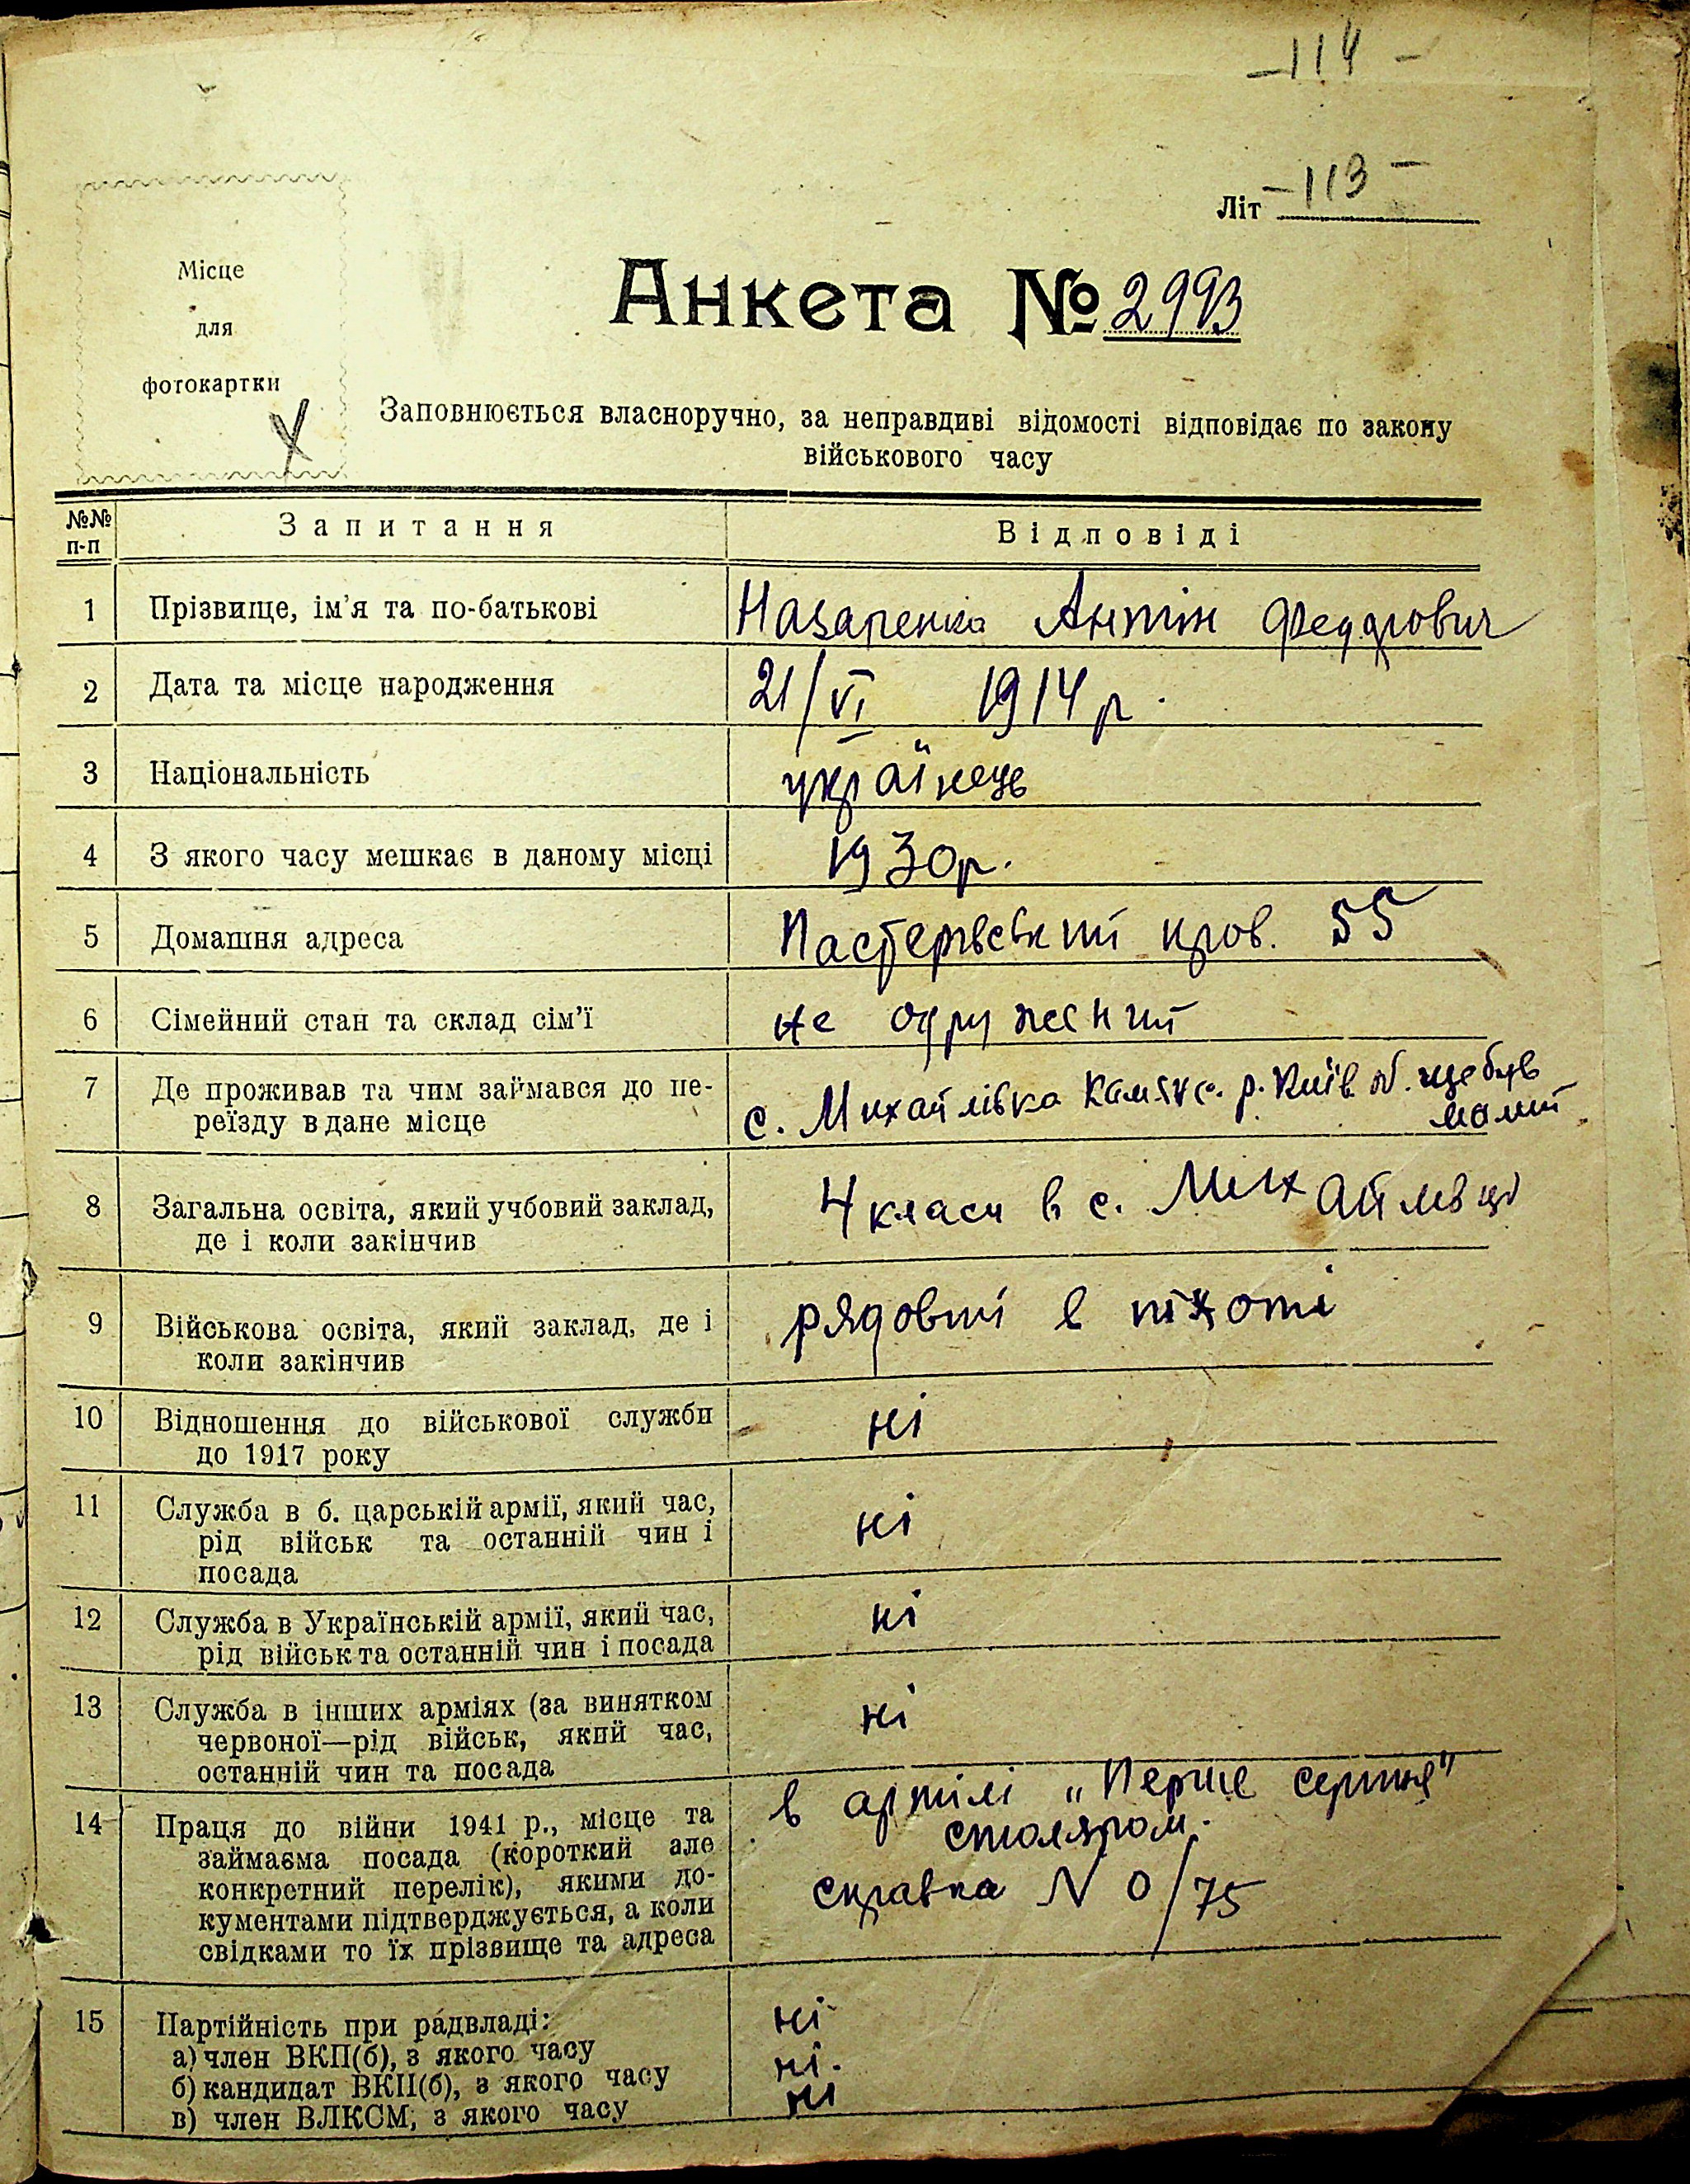 -114-
Літ -113-
Місце
для
фотокартки
Анкета № 2993
Заповнюється власноручно, за неправдиві відомості відповідає по закону
військового часу
№№ п-п Запитання Відповіді
1 Прізвище, ім'я та по-батькові Назаренко Антін Федорович
2 Дата та місце народження 21/VI 1914 р.
3 Національність українець
4 З якого часу мешкає в даному місці 1930 р.
5 Домашня адреса 55
6 Сімейний стан та склад сім'ї не одружений
7 Де проживав та чим займався до пе-
реїзду в дане місце с. Михайлівка Камянс. р. Київ. об. ще був
малий
8 Загальна освіта, який учбовий заклад,
де і коли закінчив 4 класи в с. Михайлівці
9 Військова освіта, який заклад, де і
коли закінчив рядовий в піхоті
10 Відношення до військової служби
до 1917 року ні
11 Служба в б. царській армії, який час,
рід військ та останній чин і
посада ні
12 Служба в Українській армії, який час,
рід військ та останній чин і посада ні
13 Служба в інших арміях (за винятком
червоної—рід військ, який час,
останній чин та посада ні
14 Праця до війни 1941 р., місце та
займаєма посада (короткий але
конкретний перелік), якими до-
кументами підтверджується, а коли
свідками то їх прізвище та адреса
в артілі „Перше серпня"
столяром.
справка N 0/75
15 Партійність при радвладі: ні
а) член ВКП(б), з якого часу ні.
б) кандидат ВКП(б), з якого часу ні
в) член ВЛКСМ, з якого часу